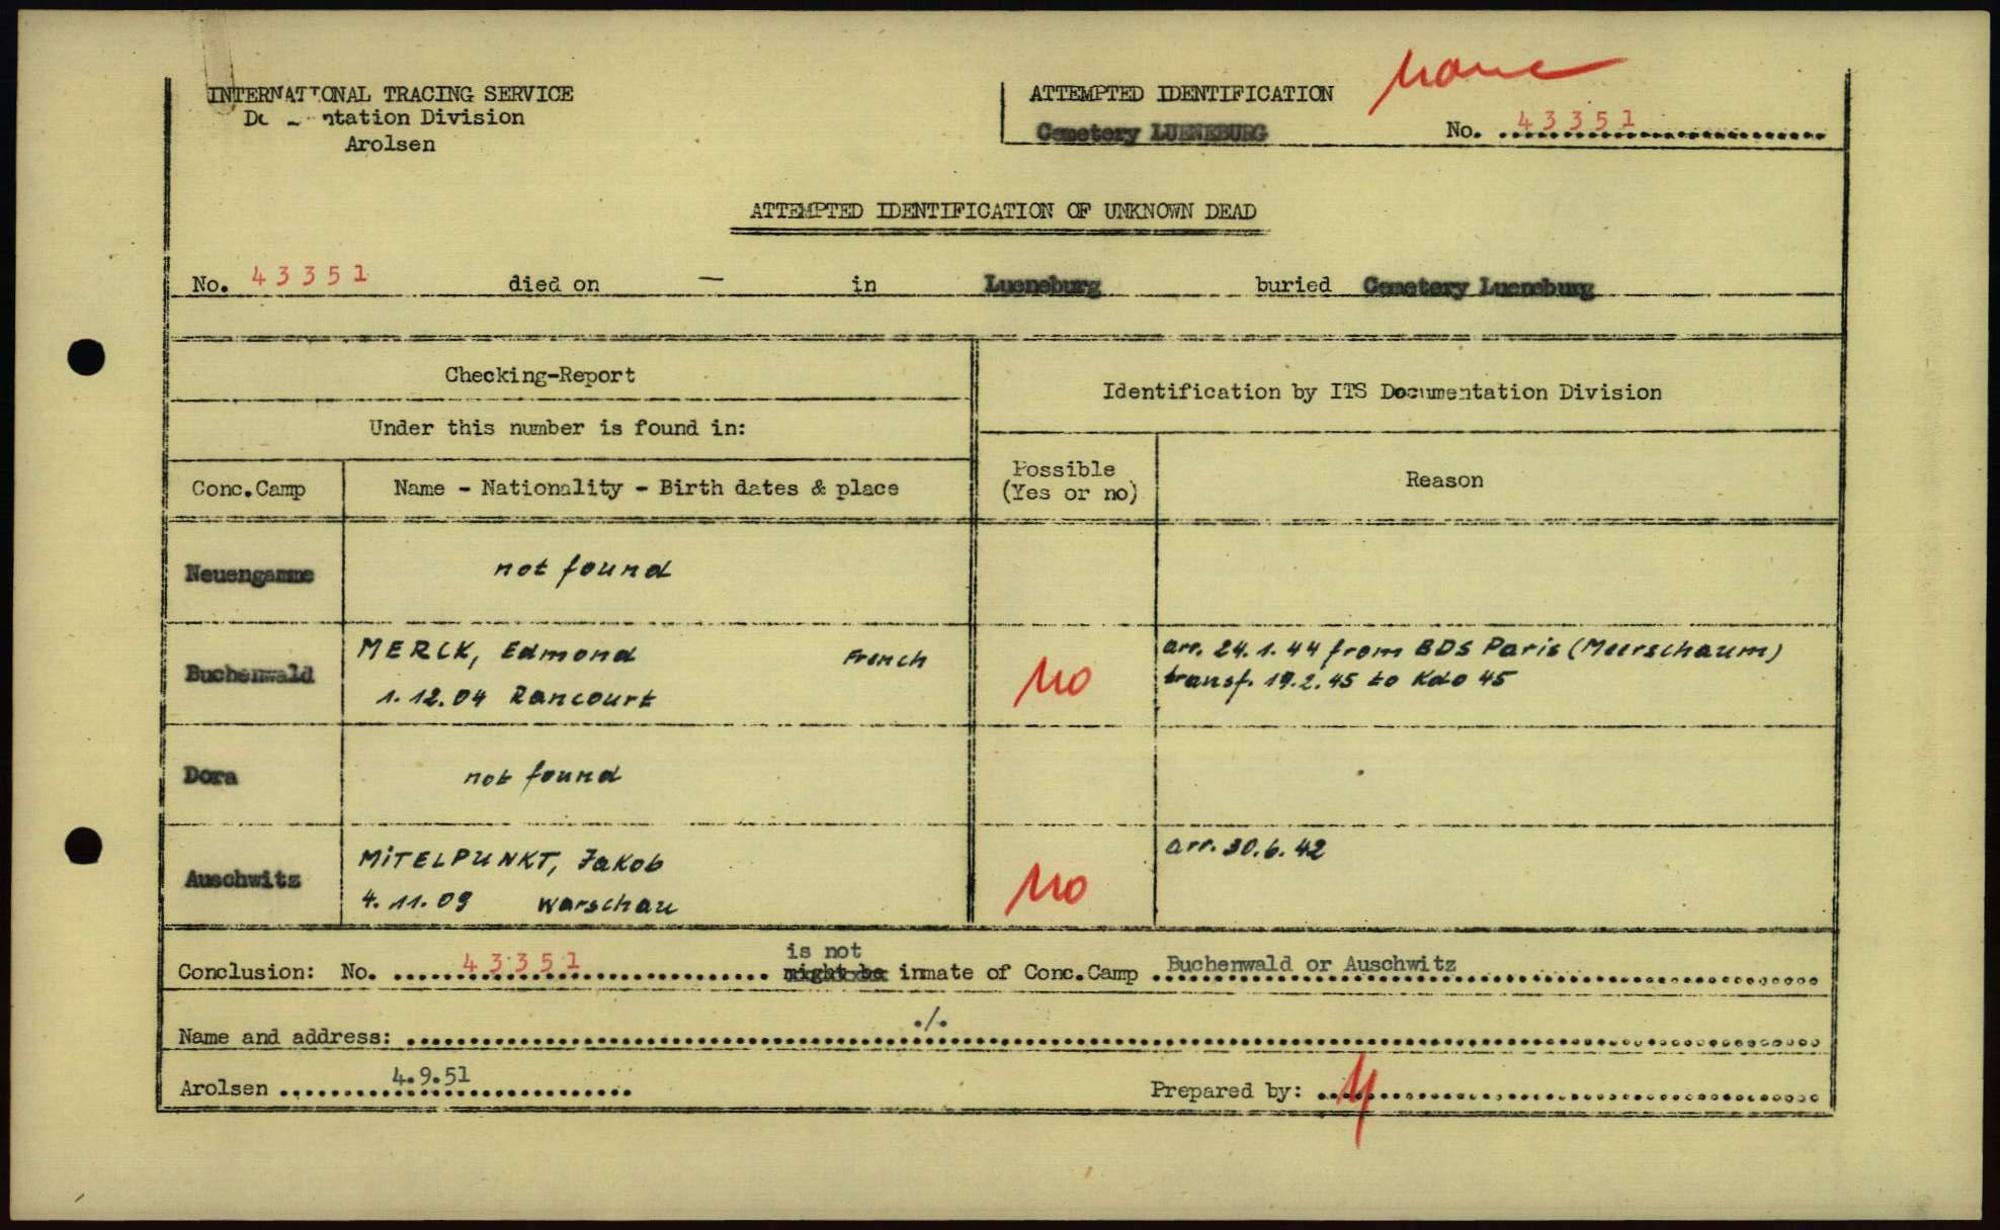 INTERNATIONAL TRACING SERVICE
Documentation Division
Arolsen
ATTEMPTED IDENTIFICATION none
Cemetery LUENEBURG No. 43351
ATTEMPTED IDENTIFICATION OF UNKNOWN DEAD
No. 43351 died on — in Lueneburg buried Cemetery Lueneburg
Checking-Report
Identification by ITS Documentation Division
Under this number is found in:
Conc.Camp Name - Nationality - Birth dates & place Possible (Yes or no) Reason
Neuengamme not found
Buchenwald MERCK, Edmond French no arr. 24.1.44 from BDS Paris (Meerschaum)
1.12.04 Rancourt transf. 19.2.45 to Kdo 45
Dora not found
Auschwitz MITELPUNKT, Jakob no arr. 30.6.42
4.11.09 Warschau
is not
Conclusion: No. 43351 might be inmate of Conc.Camp Buchenwald or Auschwitz
Name and address: ./.
Arolsen 4.9.51 Prepared by: